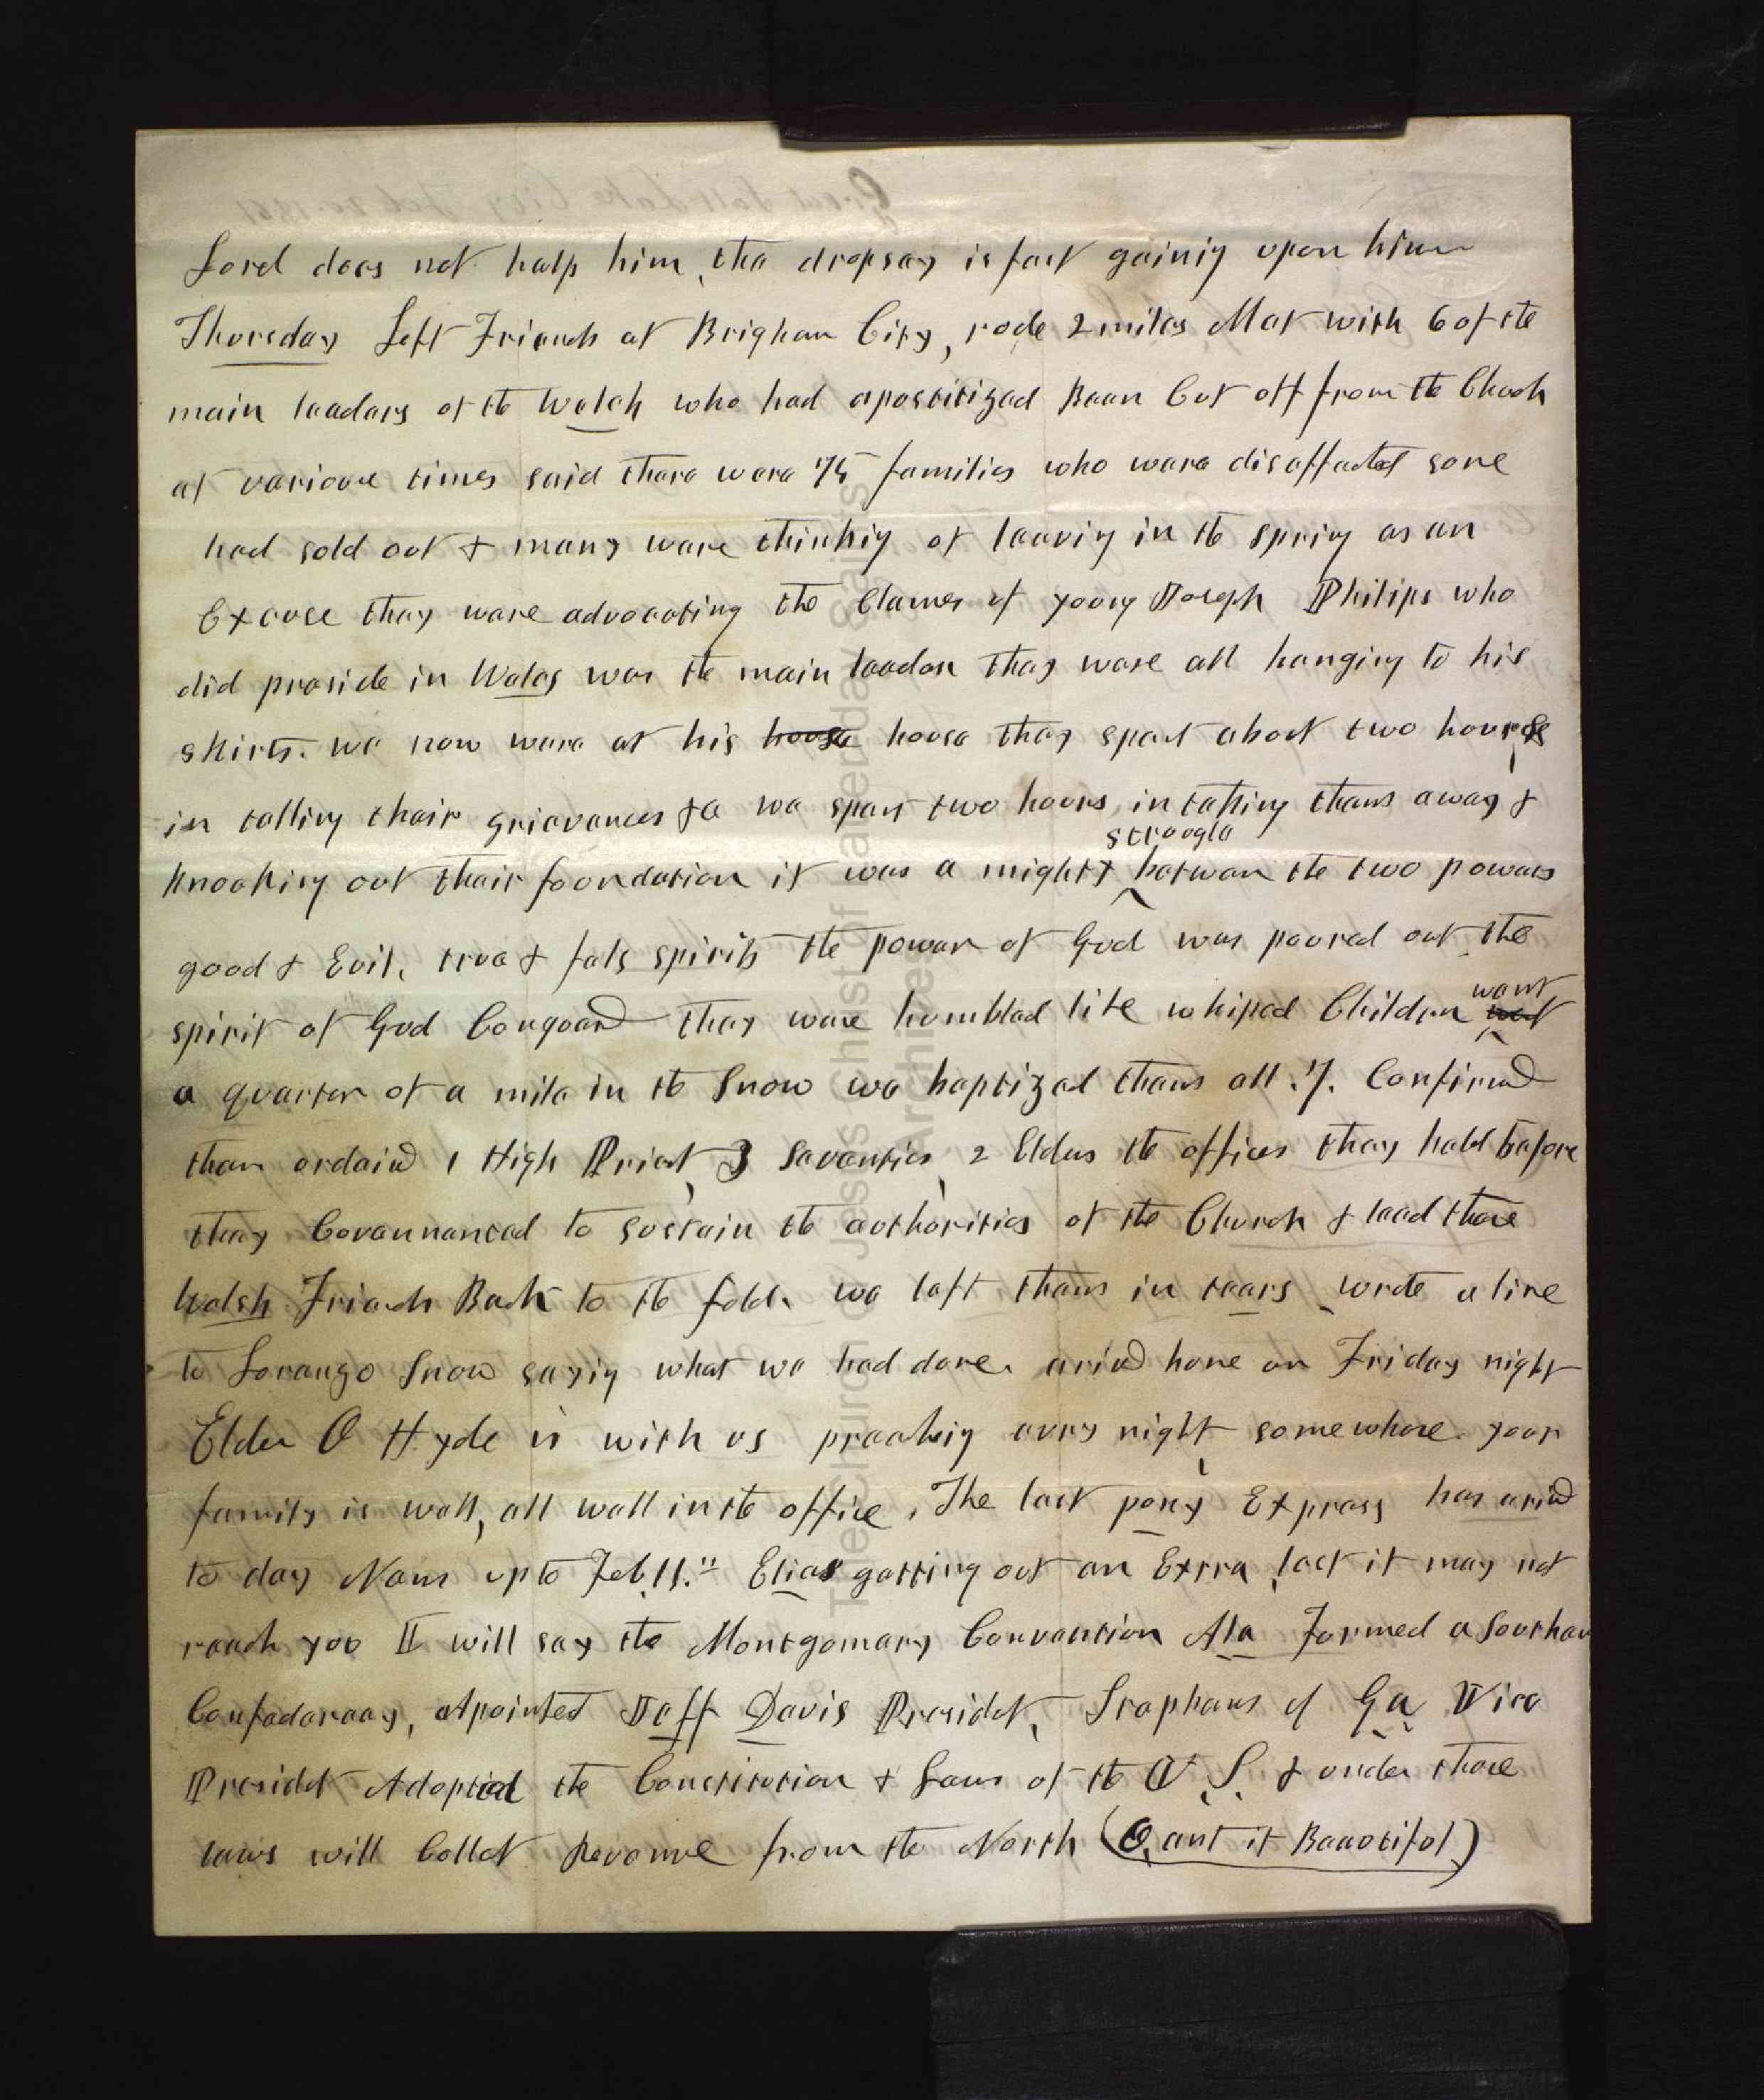 Lord does not help him, the dropsey is fast gainig upon him
Thursday Left Friends at Brigham City, rode 2 miles Met with 6 of the
main leaders of the Welch who had apostitized Been Cut off from the Chuch
at various times said there were 75 families who were disaffected some
had sold out & many were thinkig of leavig in the sprig as an
Excuse they were advocating the Clames of young Joseph Philips who
did preside in Wales was the main leader They were all hanging to his
skirts. we now were at his house house they spent about two hours
in telling their grievances &c we spent two hours in taking them away &
knocking out their foundation it was a mighty struggle betwen the two powers
good & Evil, true & fals spirits the power of God was poured out the
spirit of God Conquerd they were humbled like whiped Children went
a quarter of a mile in the Snow we baptized them all .7. Confirmd
them ordaind 1 High Priest, 3 Seventies, 2 Elders the offices they held before
they Covennanted to sustain the authorities of the Church & lead there
Welsh Friends Back to the fold. we left them in tears wrote a line
to Lorenzo Snow sayig what we had done. arivd home on Friday night
Elder O Hyde is with us preachig evry night somewhere. your
family is well, all well in the office, The last pony Express has arivd
to day News up to Feb, 11." Elias getting out an Extra, lest it may not
reach you I will say the Montgomery Convention Ala Formed a Southern
Confederacy, Apointed Jeff Davis Presidet, Stephens of Ga Vice
Presidet Adopted the Constitution & Laws of the U. S. & under those
laws will Collet Revenue from the North (O, ant it Beautiful)
The Church of Jesus Christ of Latter-day Saints
Archives